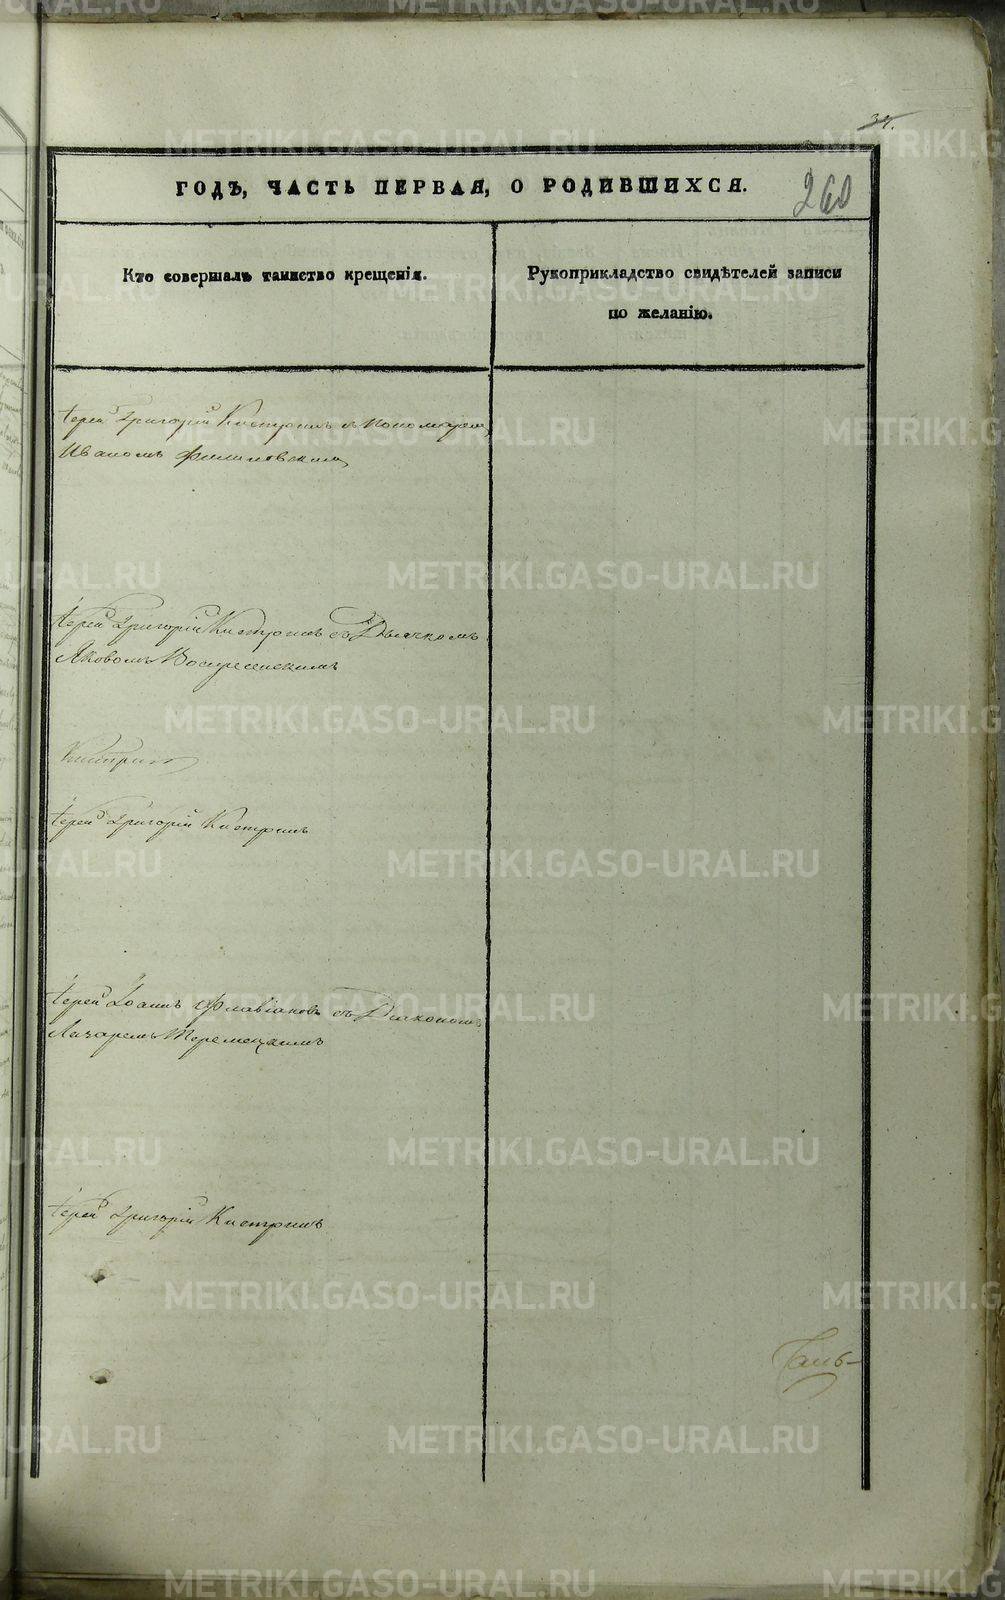 34.
ГОДЪ, ЧАСТЬ ПЕРВАЯ, О РОДИВШИХСЯ.
260
Кто совершалъ таинство крещенія.
Рукоприкладство свидѣтелей записи
по желанію.
Іерей Григорій Кистринъ съ Пономаремъ
Иваномъ Филиповскимъ
Іерей Григорій Кистринъ съ Дьячкомъ
Яковомъ Воскресенскимъ
Кистринъ
Іерей Григорій Кистринъ
Іерей Іоаннъ Флавіановъ съ Діакономъ
Лазаремъ
Іерей Григорій Кистринъ
METRIKI.GASO-URAL.RU